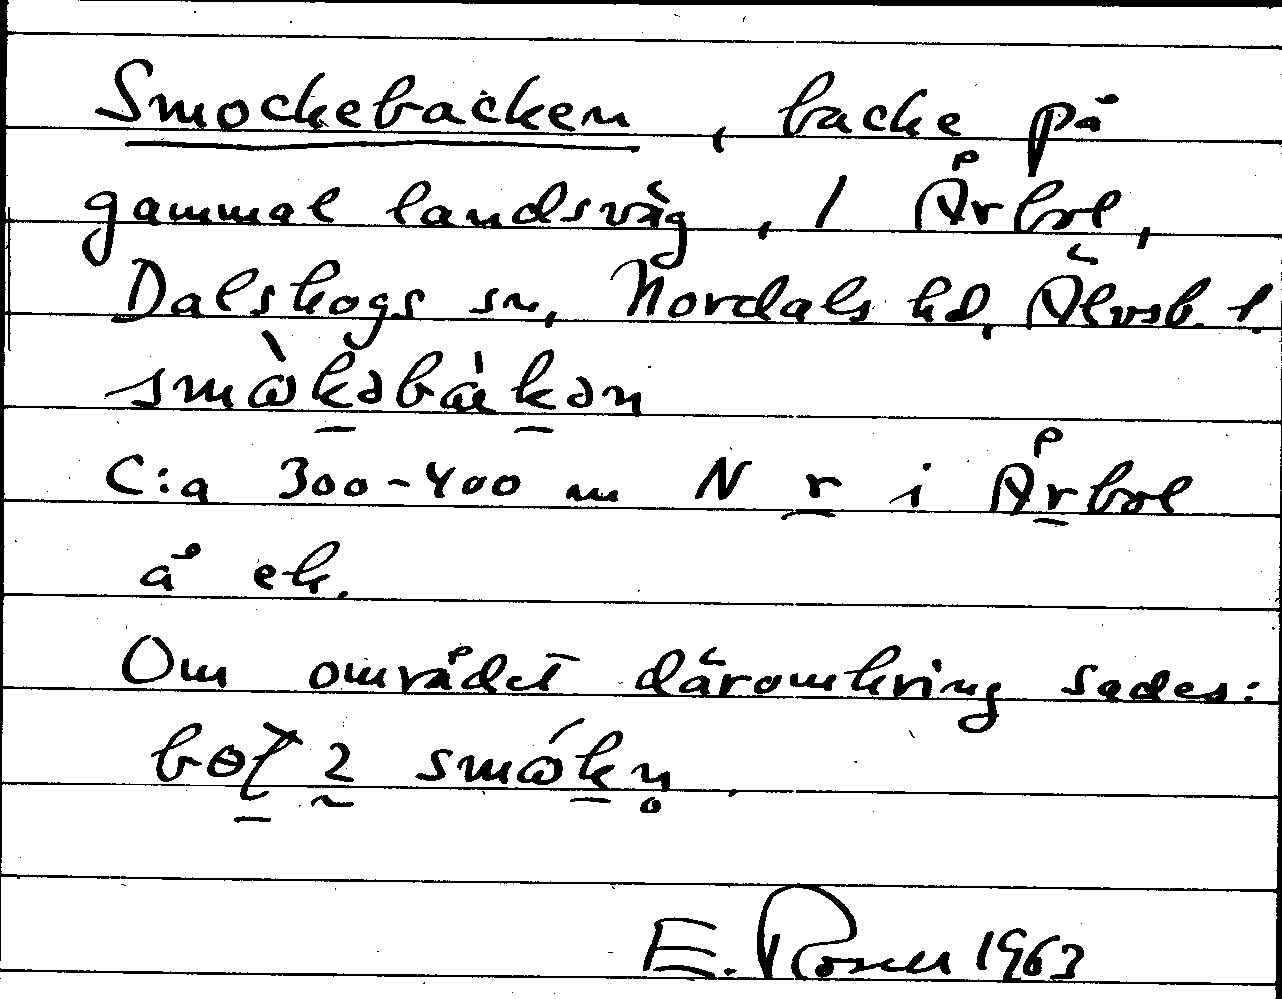 Smockebacken, backe på
gammal landsväg, 1 Årbol,
Dalskogs sn, Nordals hd, Älvsb. l.
smɷ̀kəbàkən
C:a 300-400 m N r i Årbol
å ek.
Om området däromkring sades:
smɷ́kn̥
E. Rosell 1963